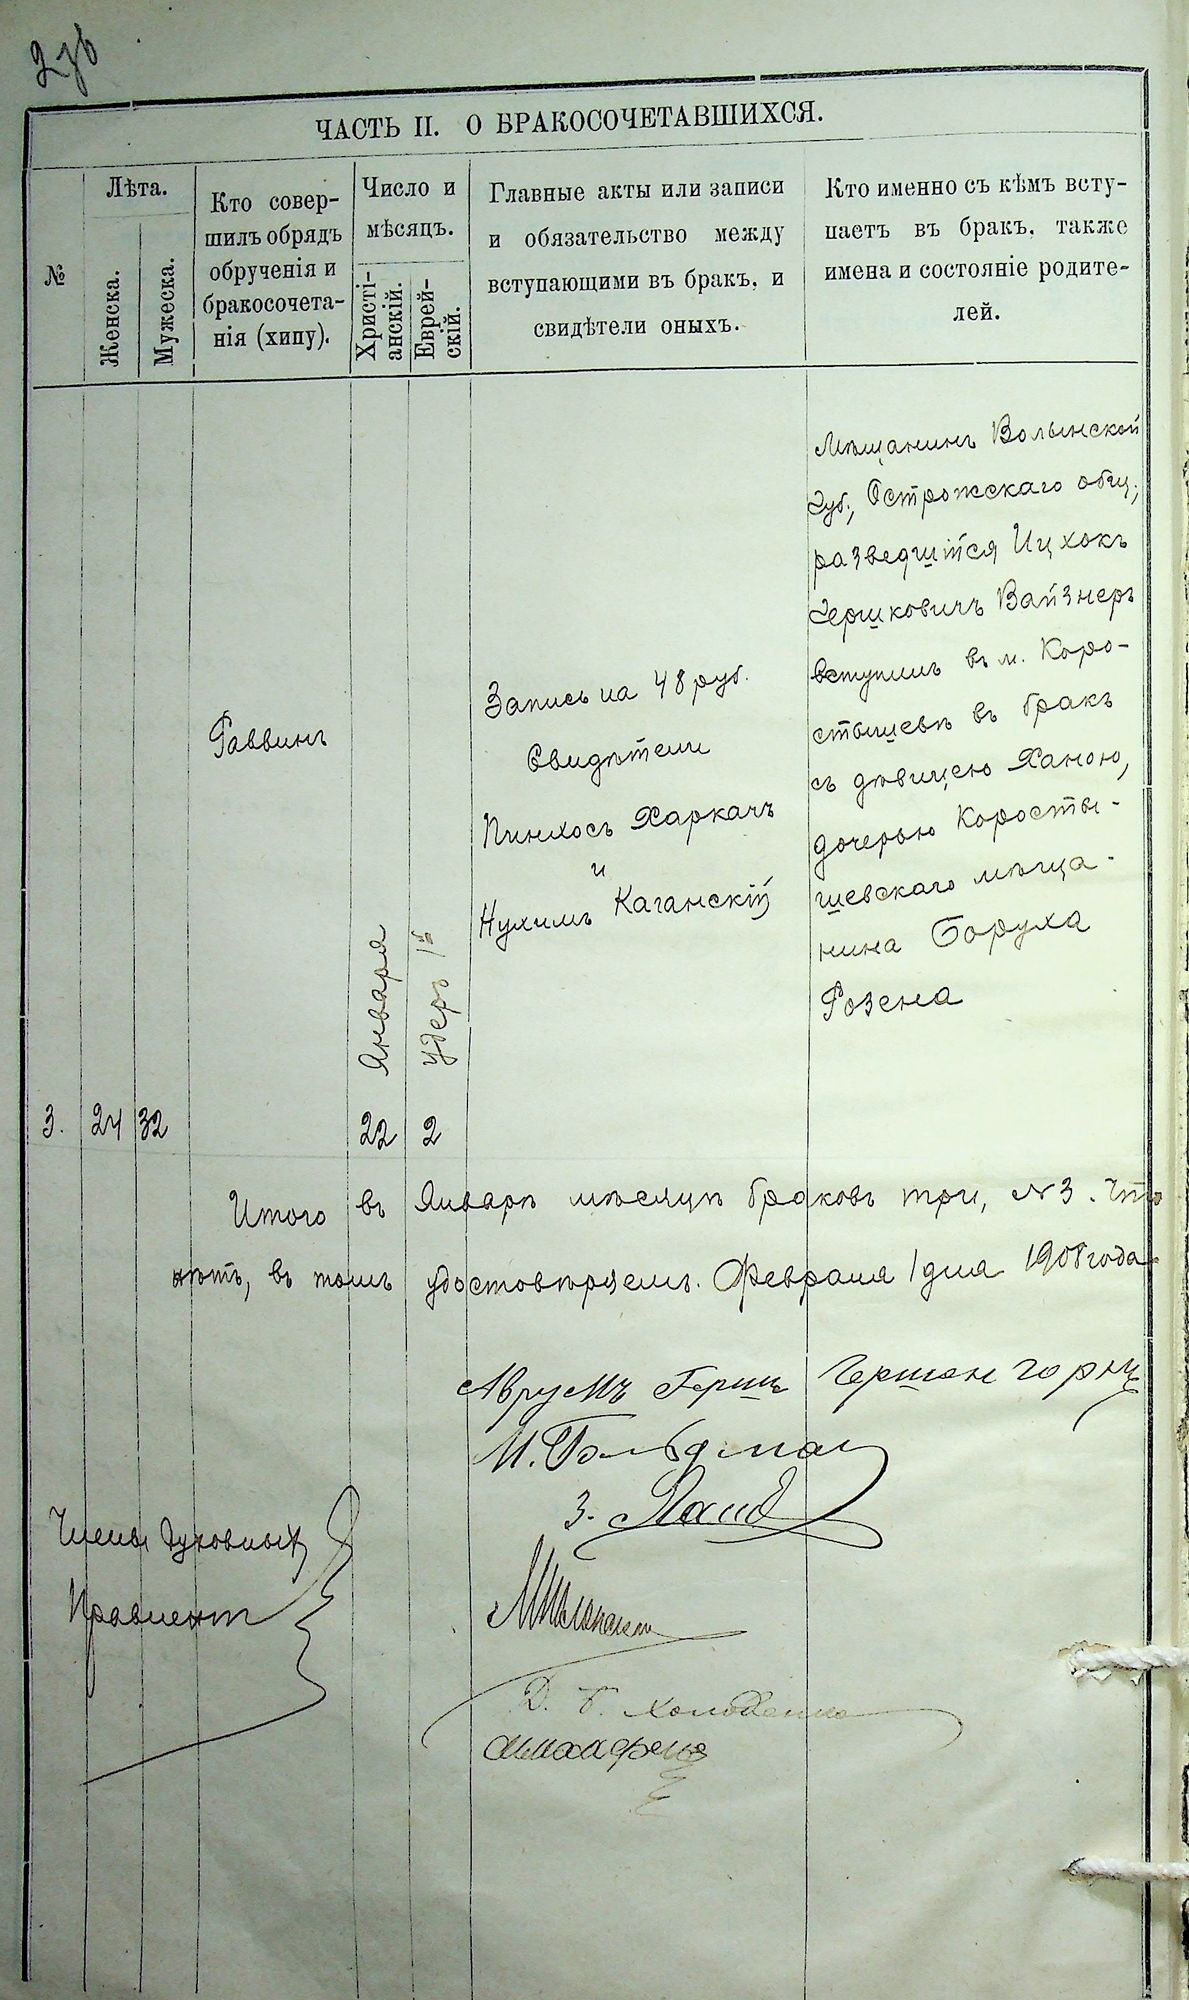 ЧАСТЬ II. О БРАКОСОЧЕТАВШИХСЯ.
№
Лѣта.
Женска.
Мужеска.
Кто совер-
шилъ обрядъ
обрученія и
бракосочета-
нія (хипу).
Число и
мѣсяцъ.
Христі-
анскій.
Еврей-
скій.
Главные акты или записи
и обязательство между
вступающими въ бракъ, и
свидѣтели оныхъ.
Кто именно съ кѣмъ всту-
паетъ въ бракъ, также
имена и состояніе родите-
лей.
3.
24
32
Раввинъ
Января
22
Удеръ 1й
2
Запись на 48 руб.
Свидѣтели
Пинхосъ Харкачъ
и
Нухимъ Каганскій
Мѣщанинъ Волынской
Губ., Острожскаго общ.,
разведшійся Ицхокъ
Гершковичъ Вайзнеръ
вступилъ въ м. Коро-
стышевѣ въ бракъ
съ дѣвицею Ханою,
дочерью Коросты-
шевскаго мѣща-
нина Боруха
Розена
Итого въ Январѣ мѣсяцѣ браковъ три, №3. Что
нѣтъ, въ томъ удостовѣряемъ. Февраля 1 дня 1908 года
Аврумъ Гершъ Гершон
М. Гольдман
З.
Члены Духовныхъ
Правлент
Д. Б. Холоденко